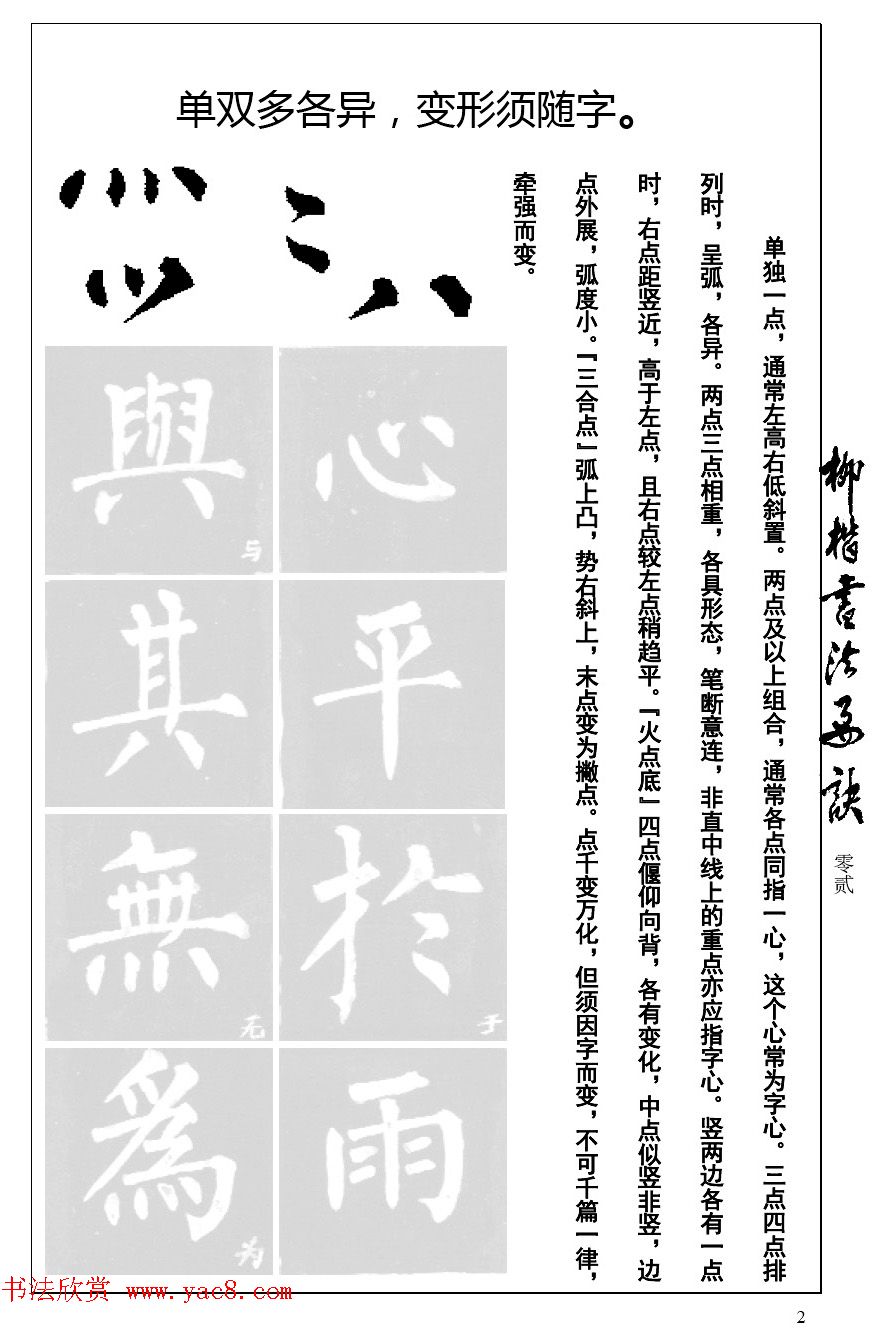 单双多各异，变形须随字。
单独一点，通常左高右低斜置。两点及以上组合，通常各点同指一心，这个心常为字心。三点四点排
列时，呈弧，各异。两点三点相重，各具形态，笔断意连，非直中线上的重点亦应指字心。竖两边各有一点
时，右点距竖近，高于左点，且右点较左点稍趋平。『火点底』四点偃仰向背，各有变化，中点似竖非竖，边
点外展，弧度小。『三合点』弧上凸，势右斜上，末点变为撇点。点千变万化，但须因字而变，不可千篇一律，
牵强而变。
心
與
与
平
其
於
于
無
无
雨
爲
为
柳楷书法要诀
零贰
书法欣赏 www.yac8.com
2